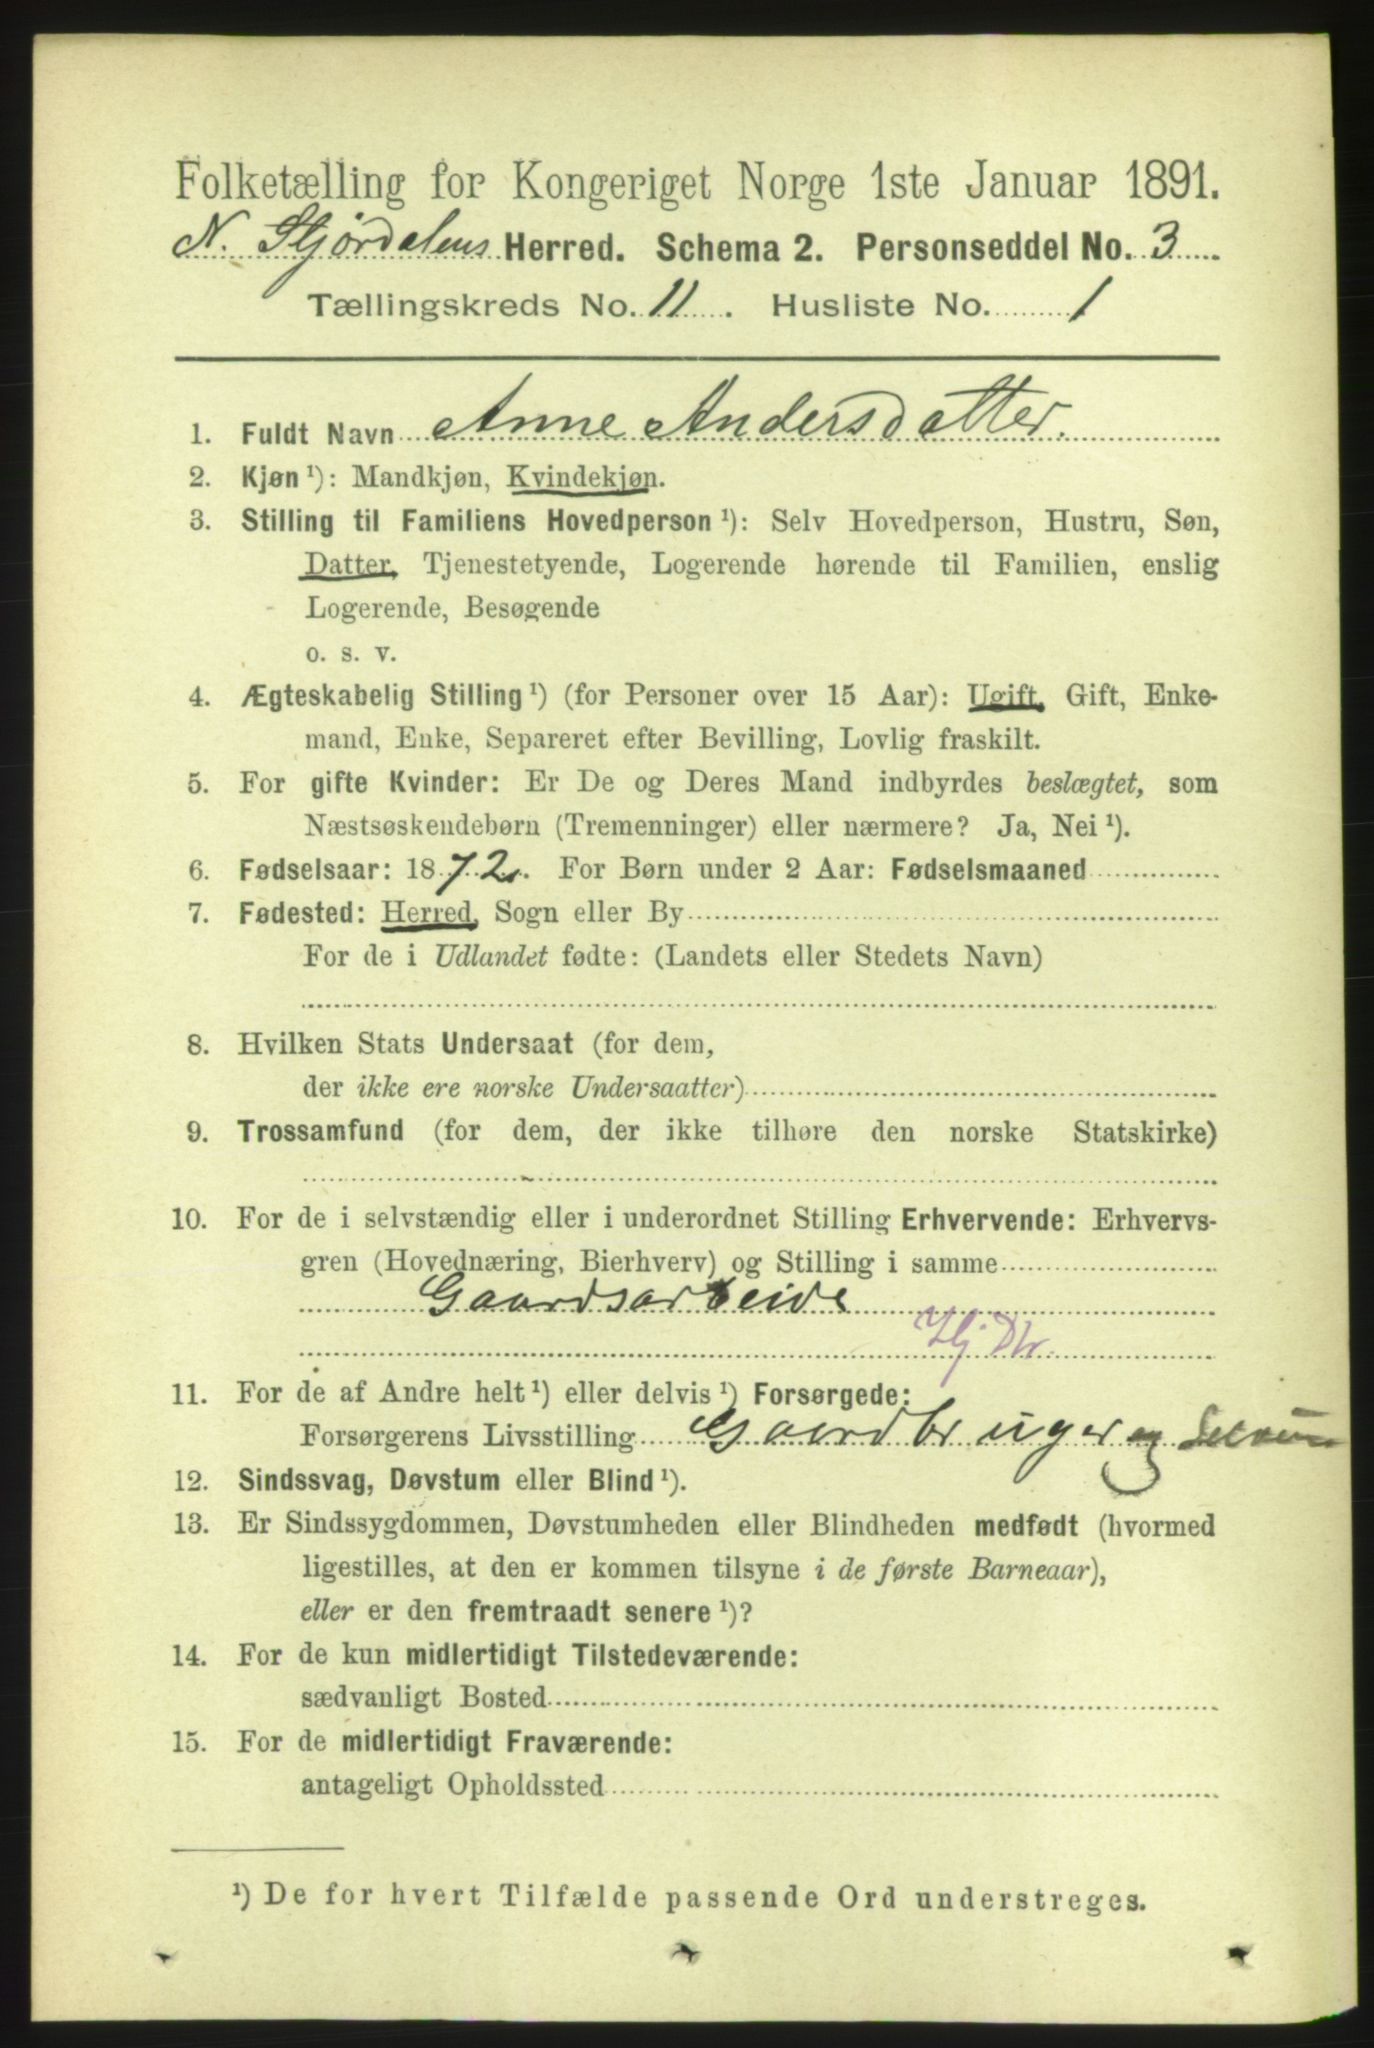 Folketælling for Kongeriget Norge 1ste Januar 1891.
N. Stjørdalens Herred. Schema 2. Personseddel No. 3
Tællingskreds No. 11. Husliste No. 1
1. Fuldt Navn Anne Andersdatter.
2. Kjøn ¹): Mandkjøn, Kvindekjøn.
3. Stilling til Familiens Hovedperson ¹): Selv Hovedperson, Hustru, Søn,
Datter, Tjenestetyende, Logerende hørende til Familien, enslig
Logerende, Besøgende
o. s. v.
4. Ægteskabelig Stilling ¹) (for Personer over 15 Aar): Ugift, Gift, Enke-
mand, Enke, Separeret efter Bevilling, Lovlig fraskilt.
5. For gifte Kvinder: Er De og Deres Mand indbyrdes beslægtet, som
Næstsøskendebørn (Tremenninger) eller nærmere? Ja, Nei ¹).
6. Fødselsaar: 1872. For Børn under 2 Aar: Fødselsmaaned
7. Fødested: Herred, Sogn eller By
For de i Udlandet fødte: (Landets eller Stedets Navn)
8. Hvilken Stats Undersaat (for dem,
der ikke ere norske Undersaatter)
9. Trossamfund (for dem, der ikke tilhøre den norske Statskirke)
10. For de i selvstændig eller i underordnet Stilling Erhvervende: Erhvervs-
gren (Hovednæring, Bierhverv) og Stilling i samme
Gaardsarbeide
Hj Dtr.
11. For de af Andre helt ¹) eller delvis ¹) Forsørgede:
Forsørgerens Livsstilling Gaardbruger og Selveier
12. Sindssvag, Døvstum eller Blind ¹).
13. Er Sindssygdommen, Døvstumheden eller Blindheden medfødt (hvormed
ligestilles, at den er kommen tilsyne i de første Barneaar),
eller er den fremtraadt senere ¹)?
14. For de kun midlertidigt Tilstedeværende:
sædvanligt Bosted
15. For de midlertidigt Fraværende:
antageligt Opholdssted
¹) De for hvert Tilfælde passende Ord understreges.